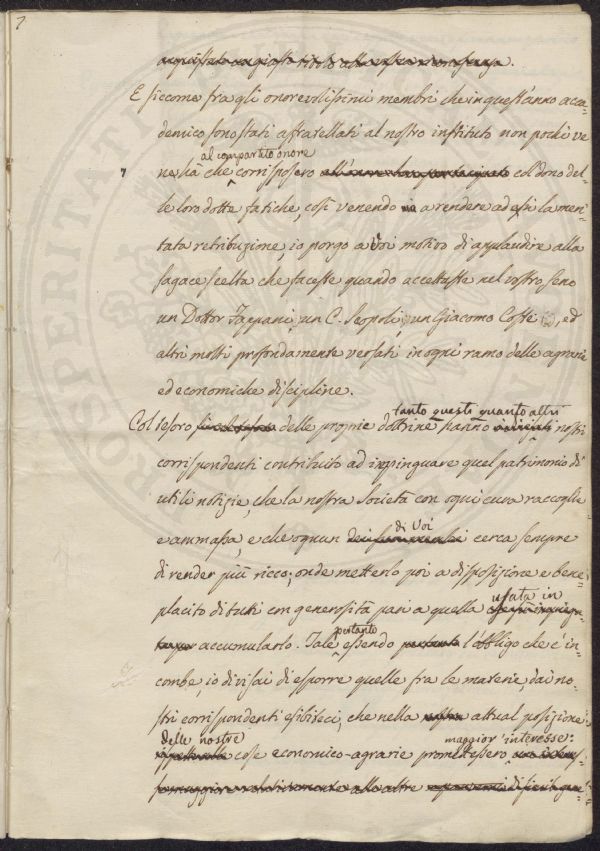 7
acquistata un giusto titolo alla vostra riconoscenza.
E siccome fra gli onorevolissimi membri che in quest'anno acca=
demico sono stati affratellati al nostro instituto non pochi ve
al compartito onore
ne hà che corrisposero col dono del=
le loro dotte fatiche, così venendo a rendere ad essi la meri=
tata retribuzione, io porgo a Voi motivo di applaudire alla
sagace scelta che faceste quando accettaste nel vostro seno
un Dottor Fappani, un C. Leopoli, un Giacomo Coste, ed
altri molti profondamente versati in ogni ramo delle agrarie
ed economiche discipline.
tanto questi quanto altri
Col tesoro delle proprie dottrine hanno nostri
corrispondenti contribuito ad impinguare quel patrimonio di
utili notizie, che la nostra Società con ogni cura raccoglie
di Voi
e ammassa, e che ognun cerca sempre
di render più ricco; onde metterlo poi a disposizione e bene=
placito di tutti con generosità pari a quella
usata in
pertanto
accumularlo. Tale essendo pertanto l'obbligo che c'in=
combe, io divisai di esporre quelle fra le materie, dai no=
stri corrispondenti esibiteci, che nella nostra attual posizione
delle nostre maggior interesse:
rispettivelle cose economico-agrarie promettessero
maggiore relativamente alle altre